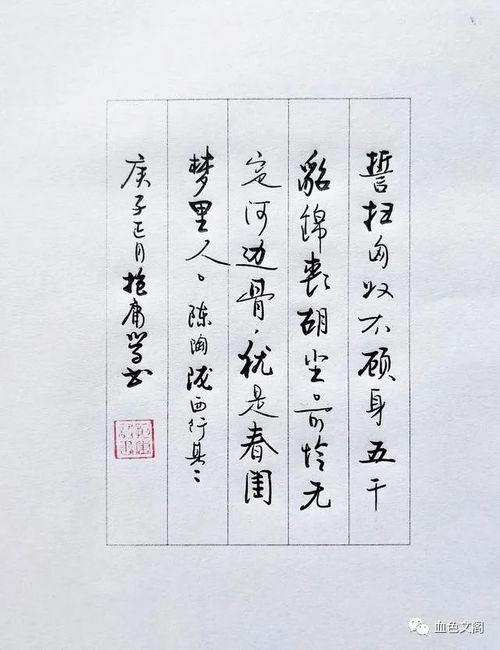 誓扫匈奴不顾身五千
貂錦喪胡尘。可怜无
定河边骨，犹是春闺
梦里人。陈陶陇西行其二
庚子正月庸书
血色文阁